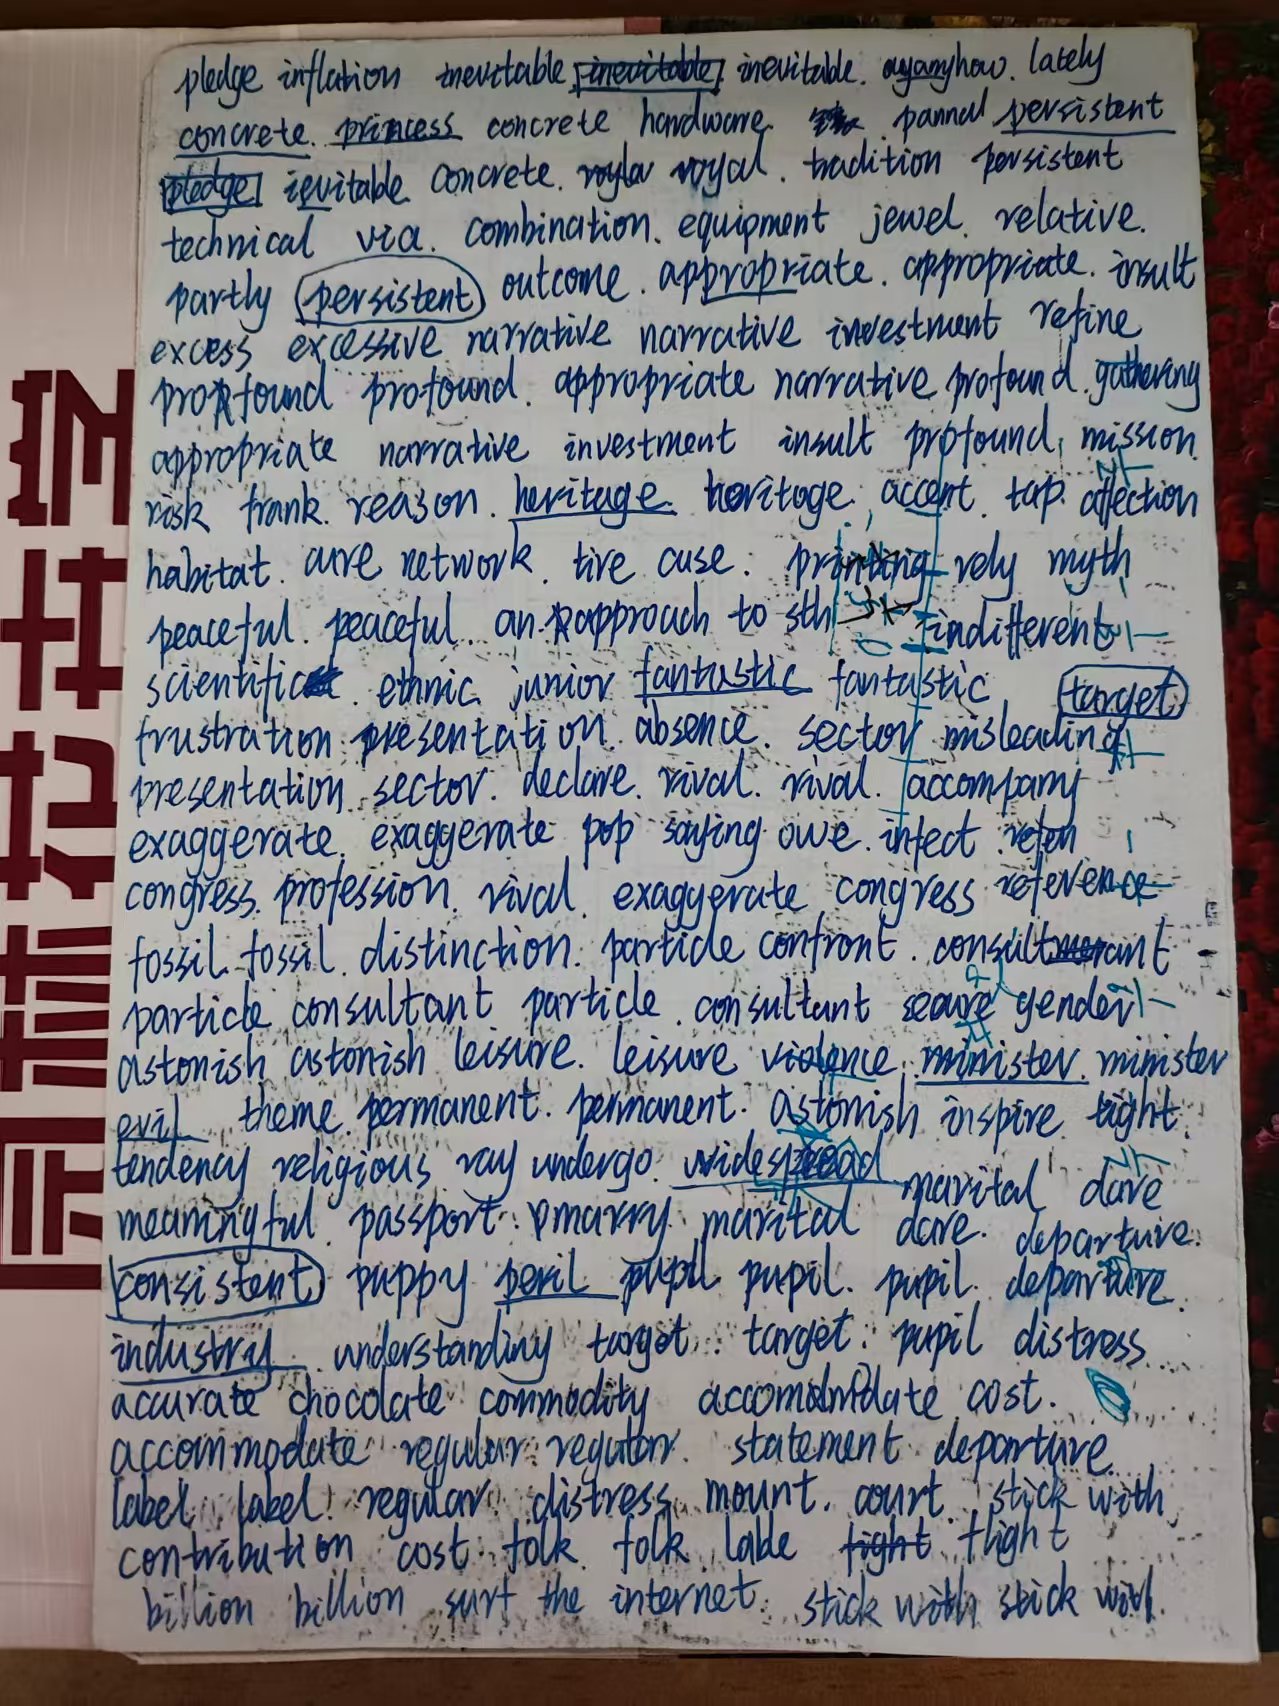 pledge inflation inevitable inevitable inevitable. anyhow. lately
concrete. princess concrete hardware. pannal persistent
pledge ievitable concrete. royla royal. tradition persistent
technical via. combination. equipment jewel. relative.
partly persistent outcome. appropriate. appropriate. insult
excess excessive narrative narrative investment refine
profound profound. appropriate narrative profound. gathering
appropriate narrative investment insult profound. mission
risk frank. reason. heritage heritage. accent. tap. affection
habitat. cure network. tire case. printing rely myth
peaceful. peaceful. an approach to sth indifferent
scientific ethnic junior fantastic fantastic target
frustration presentation. absence. sector misleading
presentation. sector. declare. rival. rival. accompany
exaggerate. exaggerate pop saying owe. infect
congress. profession. rival. exaggerate congress reference
fossil. fossil. distinction. particle confront. consultant
particle consultant particle. consultant secure gender
astonish astonish leisure. leisure violence minister. minister
evil theme. permanent. permanent. astonish inspire tight.
tendency religious ray undergo. widespread marital dare
meaningful. passport. marry. marital dare. departure.
consistent puppy peril pupil pupil. pupil. departure.
industry understanding target. target. pupil distress
accurate chocolate commodity cost.
accommodate regular regular. statement departure.
label. label. regular. distress mount. court. stick with
contribution cost. folk. folk lable fight flight
billion billion surf the internet. stick with stick with.